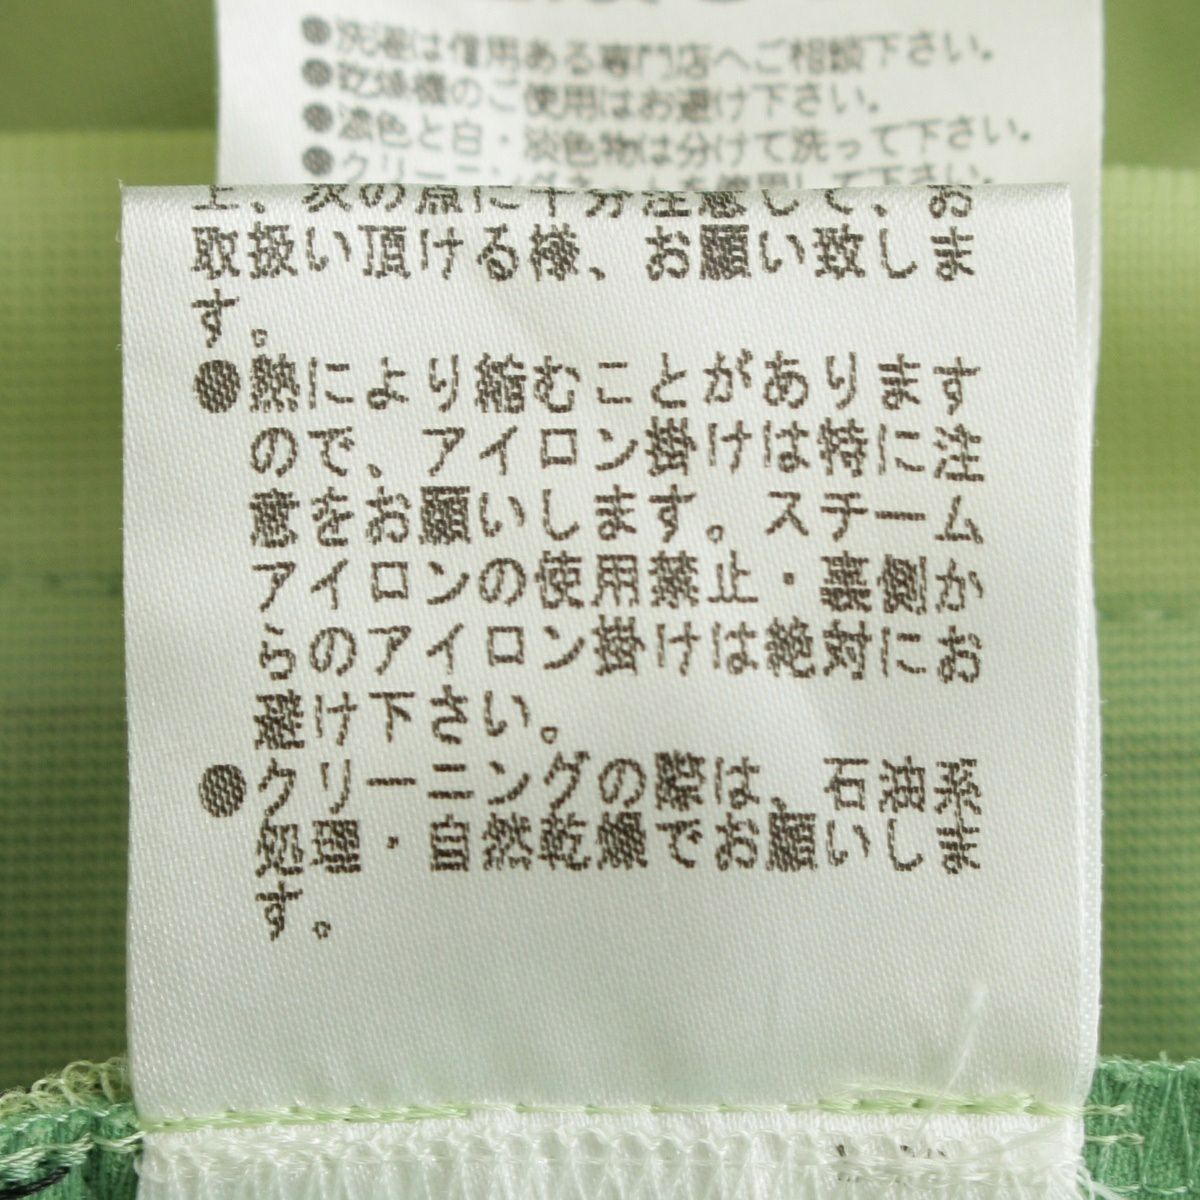 ●洗濯は信用ある専門店へご相談下さい。
●乾燥機のご使用はお避け下さい。
●濃色と白・淡色物は分けて洗って下さい。
●クリーニングネットを使用して下さい。
上、次の点に十分注意して、お
取扱い頂ける様、お願い致しま
す。
●熱により縮むことがあります
ので、アイロン掛けは特に注
意をお願いします。スチーム
アイロンの使用禁止・裏側か
らのアイロン掛けは絶対にお
避け下さい。
●クリーニングの際は、石油系
処理・自然乾燥でお願いしま
す。